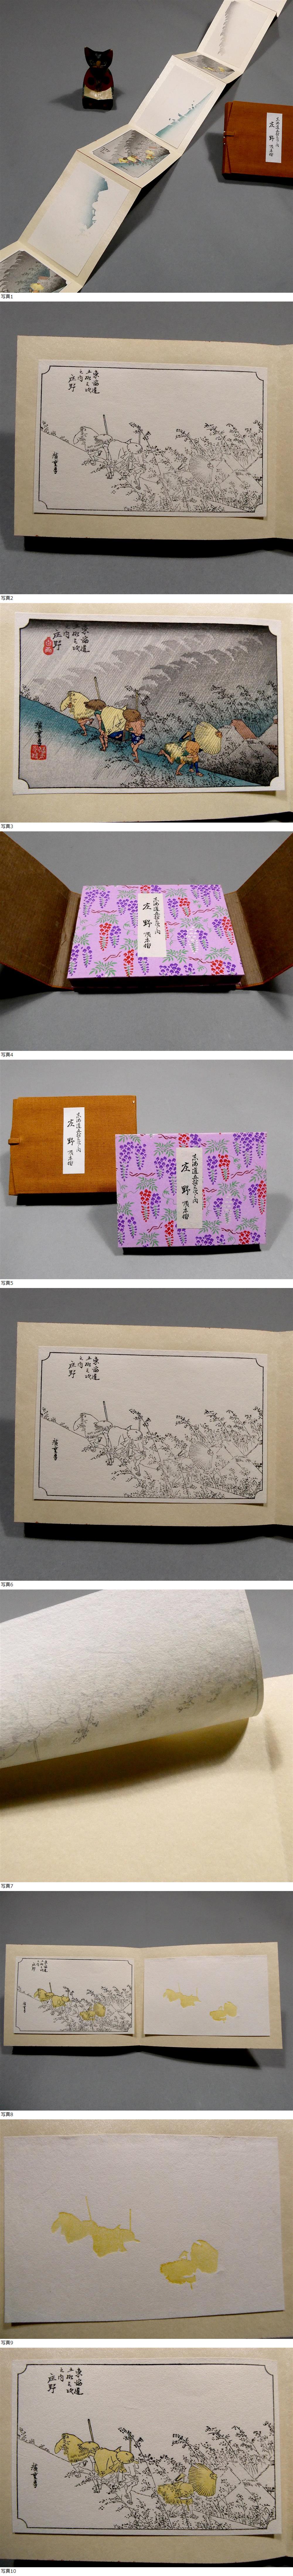 東海道五拾三次之内
庄野 順序摺
写真1
東海道
五拾三次
之内
庄野
廣重画
写真2
東海道
五拾三次
之内
庄野
廣重画
写真3
東海道五拾三次之内
庄野 順序摺
写真4
東海道五拾三次之内
庄野 順序摺
東海道五拾三次之内
庄野 順序摺
写真5
東海道
五拾三次
之内
庄野
廣重画
写真6
写真7
東海道
五拾三次
之内
庄野
写真8
写真9
東海道
五拾三次
之内
庄野
廣重画
写真10